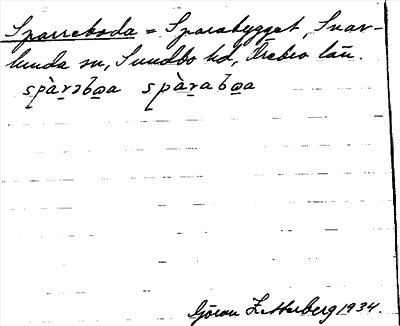 Sparreboda = Sparabygget, Snav-
lunda sn, Sundbo hd, Örebro län.
spàrəbωa spàrabωa
Göran Zetterberg 1934.